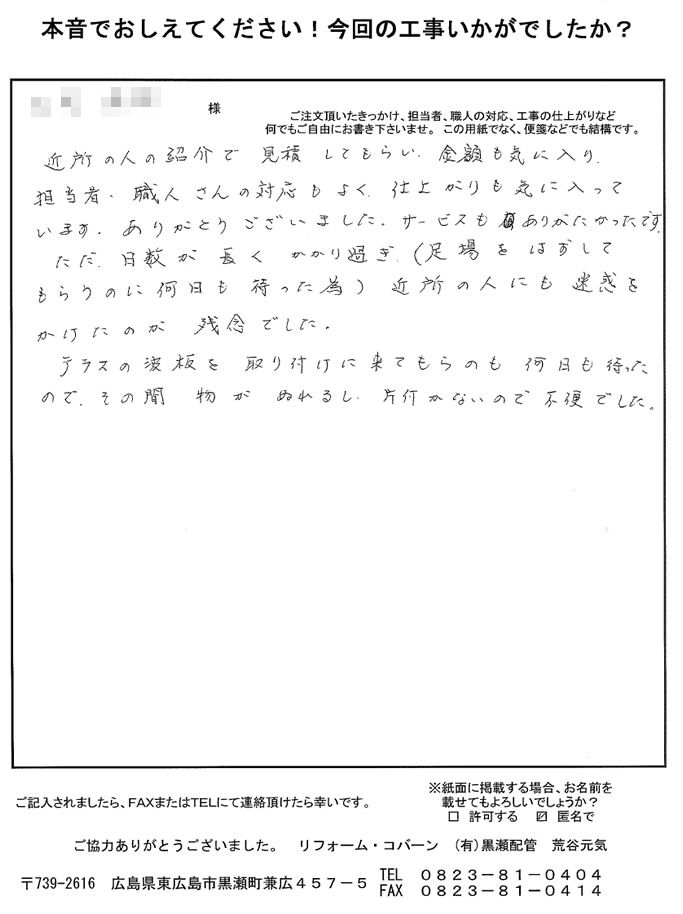 本音でおしえてください！今回の工事いかがでしたか？
様
ご注文頂いたきっかけ、担当者、職人の対応、工事の仕上がりなど
何でもご自由にお書き下さいませ。この用紙でなく、便箋などでも結構です。
近所の人の紹介で 見積してもらい、金額も気に入り、
担当者・職人さんの対応もよく、仕上がりも気に入って
います。ありがとうございました。サービスもありがたかったです。
ただ、日数が 長く かかり過ぎ、（足場をはずして
もらうのに何日も 待った為）近所の人にも 迷惑を
かけたのが 残念でした。
テラスの波板を 取り付けに来てもらのも 何日も待った
ので、その間 物が ぬれるし、片付かないので 不便でした。
ご記入されましたら、FAXまたはTELにて連絡頂けたら幸いです。
※紙面に掲載する場合、お名前を
載せてもよろしいでしょうか？
□ 許可する ☑ 匿名で
ご協力ありがとうございました。 リフォーム・コバーン （有）黒瀬配管 荒谷元気
〒739-2616 広島県東広島市黒瀬町兼広４５７－５
TEL ０８２３－８１－０４０４
FAX ０８２３－８１－０４１４